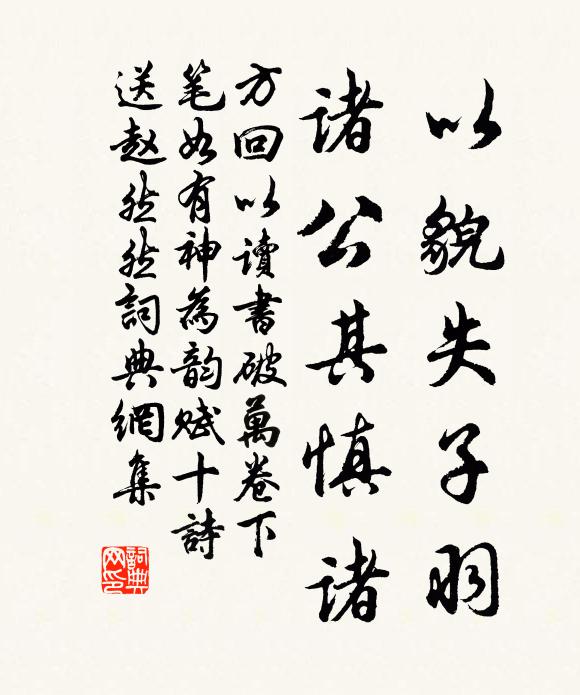 以貌失子羽
諸公其慎諸
方回以讀書破萬卷下
笔如有神為韵赋十詩
送赵然然詞典網集
詞典
网印